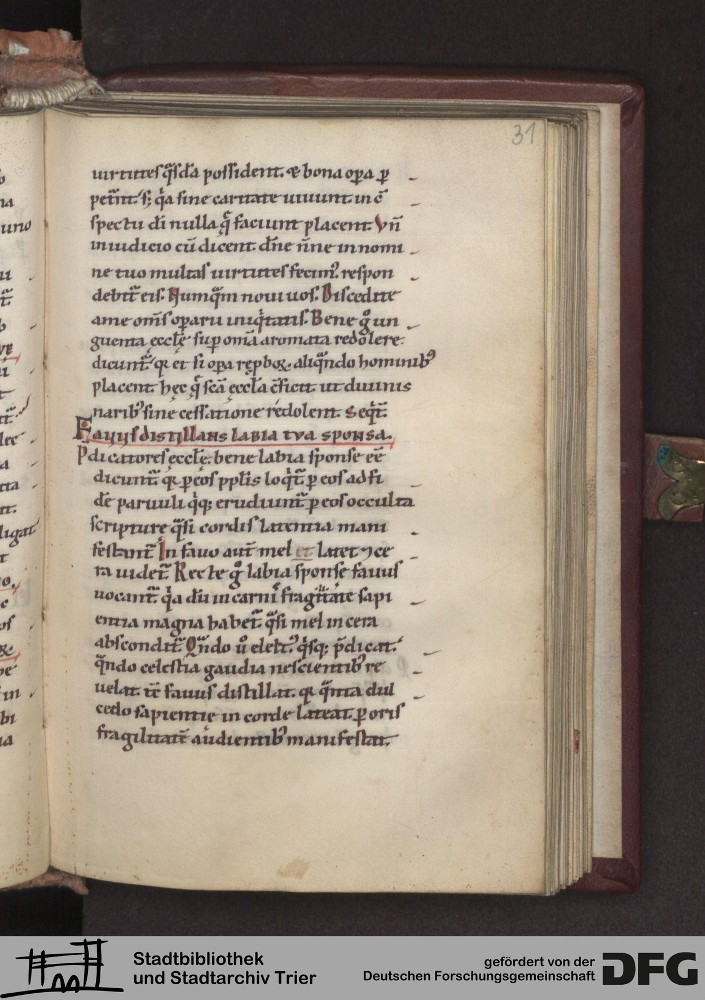 31
uirtutes q̄sdā possident. & bona oꝑa ꝑ
petr̄nt. s; q̄a sine caritate uiuunt in c̄
spectu dī nulla q̄ faciunt placent. Vn̄
in iudicio cū dicent. dn̄e n̄ne in nomi
ne tuo multas uirtutes fecim᷒. respon
debit̄ eis. Numq̄m noui uos. Discedite
a me om̄s oꝑarii iniq̄tatis. Bene g̊ un
guenta eccl̄ę suꝑ om̄a aromata redolere.
dicunt̄. q̄ et si oꝑa rep̱boꝝ. aliq̄ndo hominib᷒
placent. hęc q̄ scā eccl̄a c̄ficit ut diuinis
narib᷒ sine cessatione redolent. Seqt̄.
Fauus distillans labia tua sponsa.
Pdicatores eccl̄ę. bene labia sponse eē
dicunt̄. q̄ ꝑ eos pp̄lis loqt̄. ꝑ eos ad fi
dē paruuli q̄q; erudiunt̄. ꝑ eos occulta
scripture q̄si cordis latentia mani
festant̄. In fauo aut̄ mel et latet ⁊ ce
ra uidet̄. Recte g̊ labia sponse fauus
uocant̄. q̄a dū in carnis fragilitate sapi
entia magna habet̄. q̄si mel in cera
abscondit̄. Q̄ndo ū elect᷒. q̄sq; p̄dicat᷒.
q̄ndo celestia gaudia nescientib᷒ re
uelat. tc̄ fauus distillat. q̄ q̄nta dul
cedo sapientie in corde lateat. ꝑ oris
fragilitatē audientib᷒ manifestat.
Stadtbibliothek
und Stadtarchiv Trier
gefördert von der
Deutschen Forschungsgemeinschaft
DFG